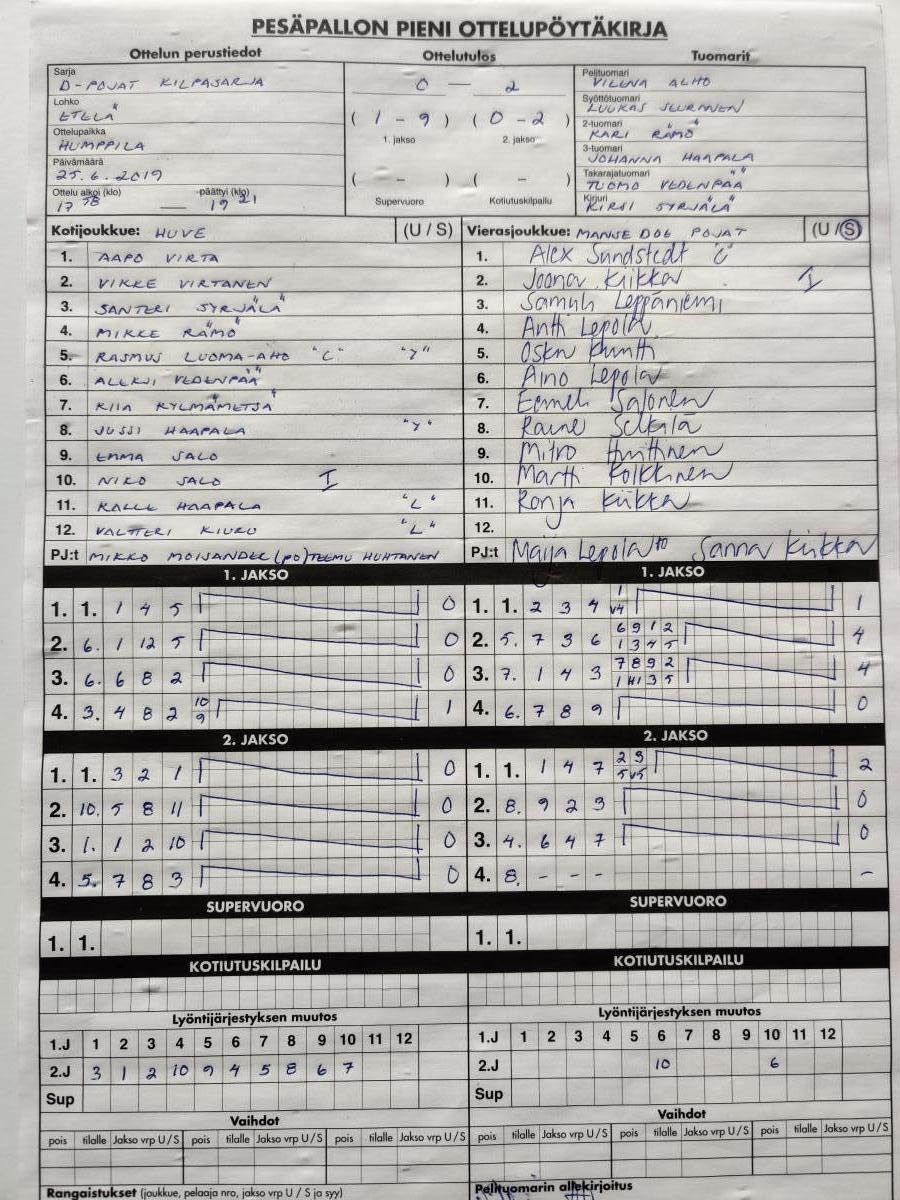 PESÄPALLON PIENI OTTELUPÖYTÄKIRJA
Ottelun perustiedot Ottelutulos Tuomarit
Sarja
D-POJAT KILPASARJA
Lohko
ETELÄ
Ottelupaikka
HUMPPILA
Päivämäärä
25.6.2019
Ottelu alkoi (klo) -päättyi (klo)
17 58 — 19 21
0 — 2
( 1 - 9 ) ( 0 - 2 )
1. jakso 2. jakso
( - ) ( - )
Supervuoro Kotiutuskilpailu
Pelituomari
VILENA ALHO
Syöttötuomari
LUUKAS SEURANEN
2-tuomari
KARI RÄMÖ
3-tuomari
JOHANNA HAAPALA
Takarajatuomari
TUOMO VEDENPÄÄ
Kirjuri
KIRSI SYRJÄLÄ
Kotijoukkue: HUVE (U / S)
1. AAPO VIRTA
2. VIKKE VIRTANEN
3. SANTERI SYRJÄLÄ
4. MIKKE RÄMÖ
5. RASMUS LUOMA-AHO "C" "Y"
6. ALEKSI VEDENPÄÄ
7. KIIA KYLMÄMETSÄ
8. JUSSI HAAPALA "Y"
9. EMMA SALO
10. NIKO SALO I
11. KALLE HAAPALA "L"
12. VALTTERI KIURU "L"
PJ:t MIKKO MOISANDER (PO) TEEMU HUHTANEN
Vierasjoukkue: MANSE DOG POJAT (U / S)
1. Alex Sundstedt "C"
2. Joona Kiikka I
3. Samuli Leppäniemi
4. Antti Lepola
5. Oskn Kuntti
6. Aino Lepola
7. Eemeli Salonen
8. Raine Selkälä
9. Mitro Huittinen
10. Martti Kolkkinen
11. Ronja Kiikka
12.
PJ:t Maija Lepola Sanna Kiikka
1. JAKSO
1. 1. 1 4 5 0
2. 6. 1 12 5 0
3. 6. 6 8 2 0
4. 3. 4 8 2 10 9 1
2. JAKSO
1. 1. 3 2 1 0
2. 10. 5 8 11 0
3. 1. 1 2 10 0
4. 5. 7 8 3 0
SUPERVUORO
1. 1.
KOTIUTUSKILPAILU
Lyöntijärjestyksen muutos
1.J 1 2 3 4 5 6 7 8 9 10 11 12
2.J 3 1 2 10 9 4 5 8 6 7
Sup
Vaihdot
pois tilalle Jakso vrp U / S pois tilalle Jakso vrp U / S pois tilalle Jakso vrp U / S
Rangaistukset (joukkue, pelaaja nro, jakso vrp U / S ja syy)
1. JAKSO
1. 1. 2 3 4 1 V4 1
2. 5. 7 3 6 6 9 1 2 4
1 3 4 5
3. 7. 1 4 3 7 8 9 2 4
4. 6. 7 8 9 0
2. JAKSO
1. 1. 1 4 7 2 3 2
5 V5
2. 8. 9 2 3 0
3. 4. 6 4 7 0
4. 8. - - - -
SUPERVUORO
1. 1.
KOTIUTUSKILPAILU
Lyöntijärjestyksen muutos
1.J 1 2 3 4 5 6 7 8 9 10 11 12
2.J 10 6
Sup
Vaihdot
pois tilalle Jakso vrp U / S pois tilalle Jakso vrp U / S pois tilalle Jakso vrp U / S
Pelituomarin allekirjoitus